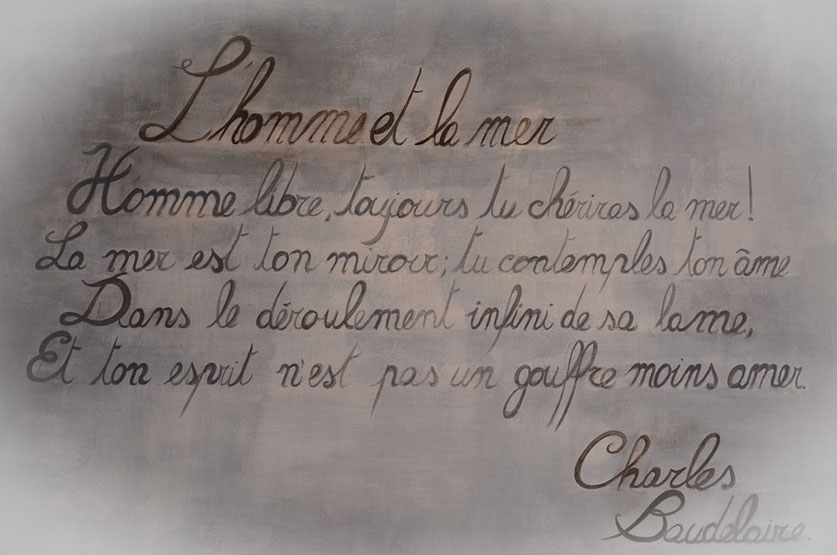 L'homme et la mer
Homme libre, toujours tu chériras la mer!
La mer est ton miroir; tu contemples ton âme
Dans le déroulement infini de sa lame,
Et ton esprit n'est pas un gouffre moins amer.
Charles
Baudelaire.